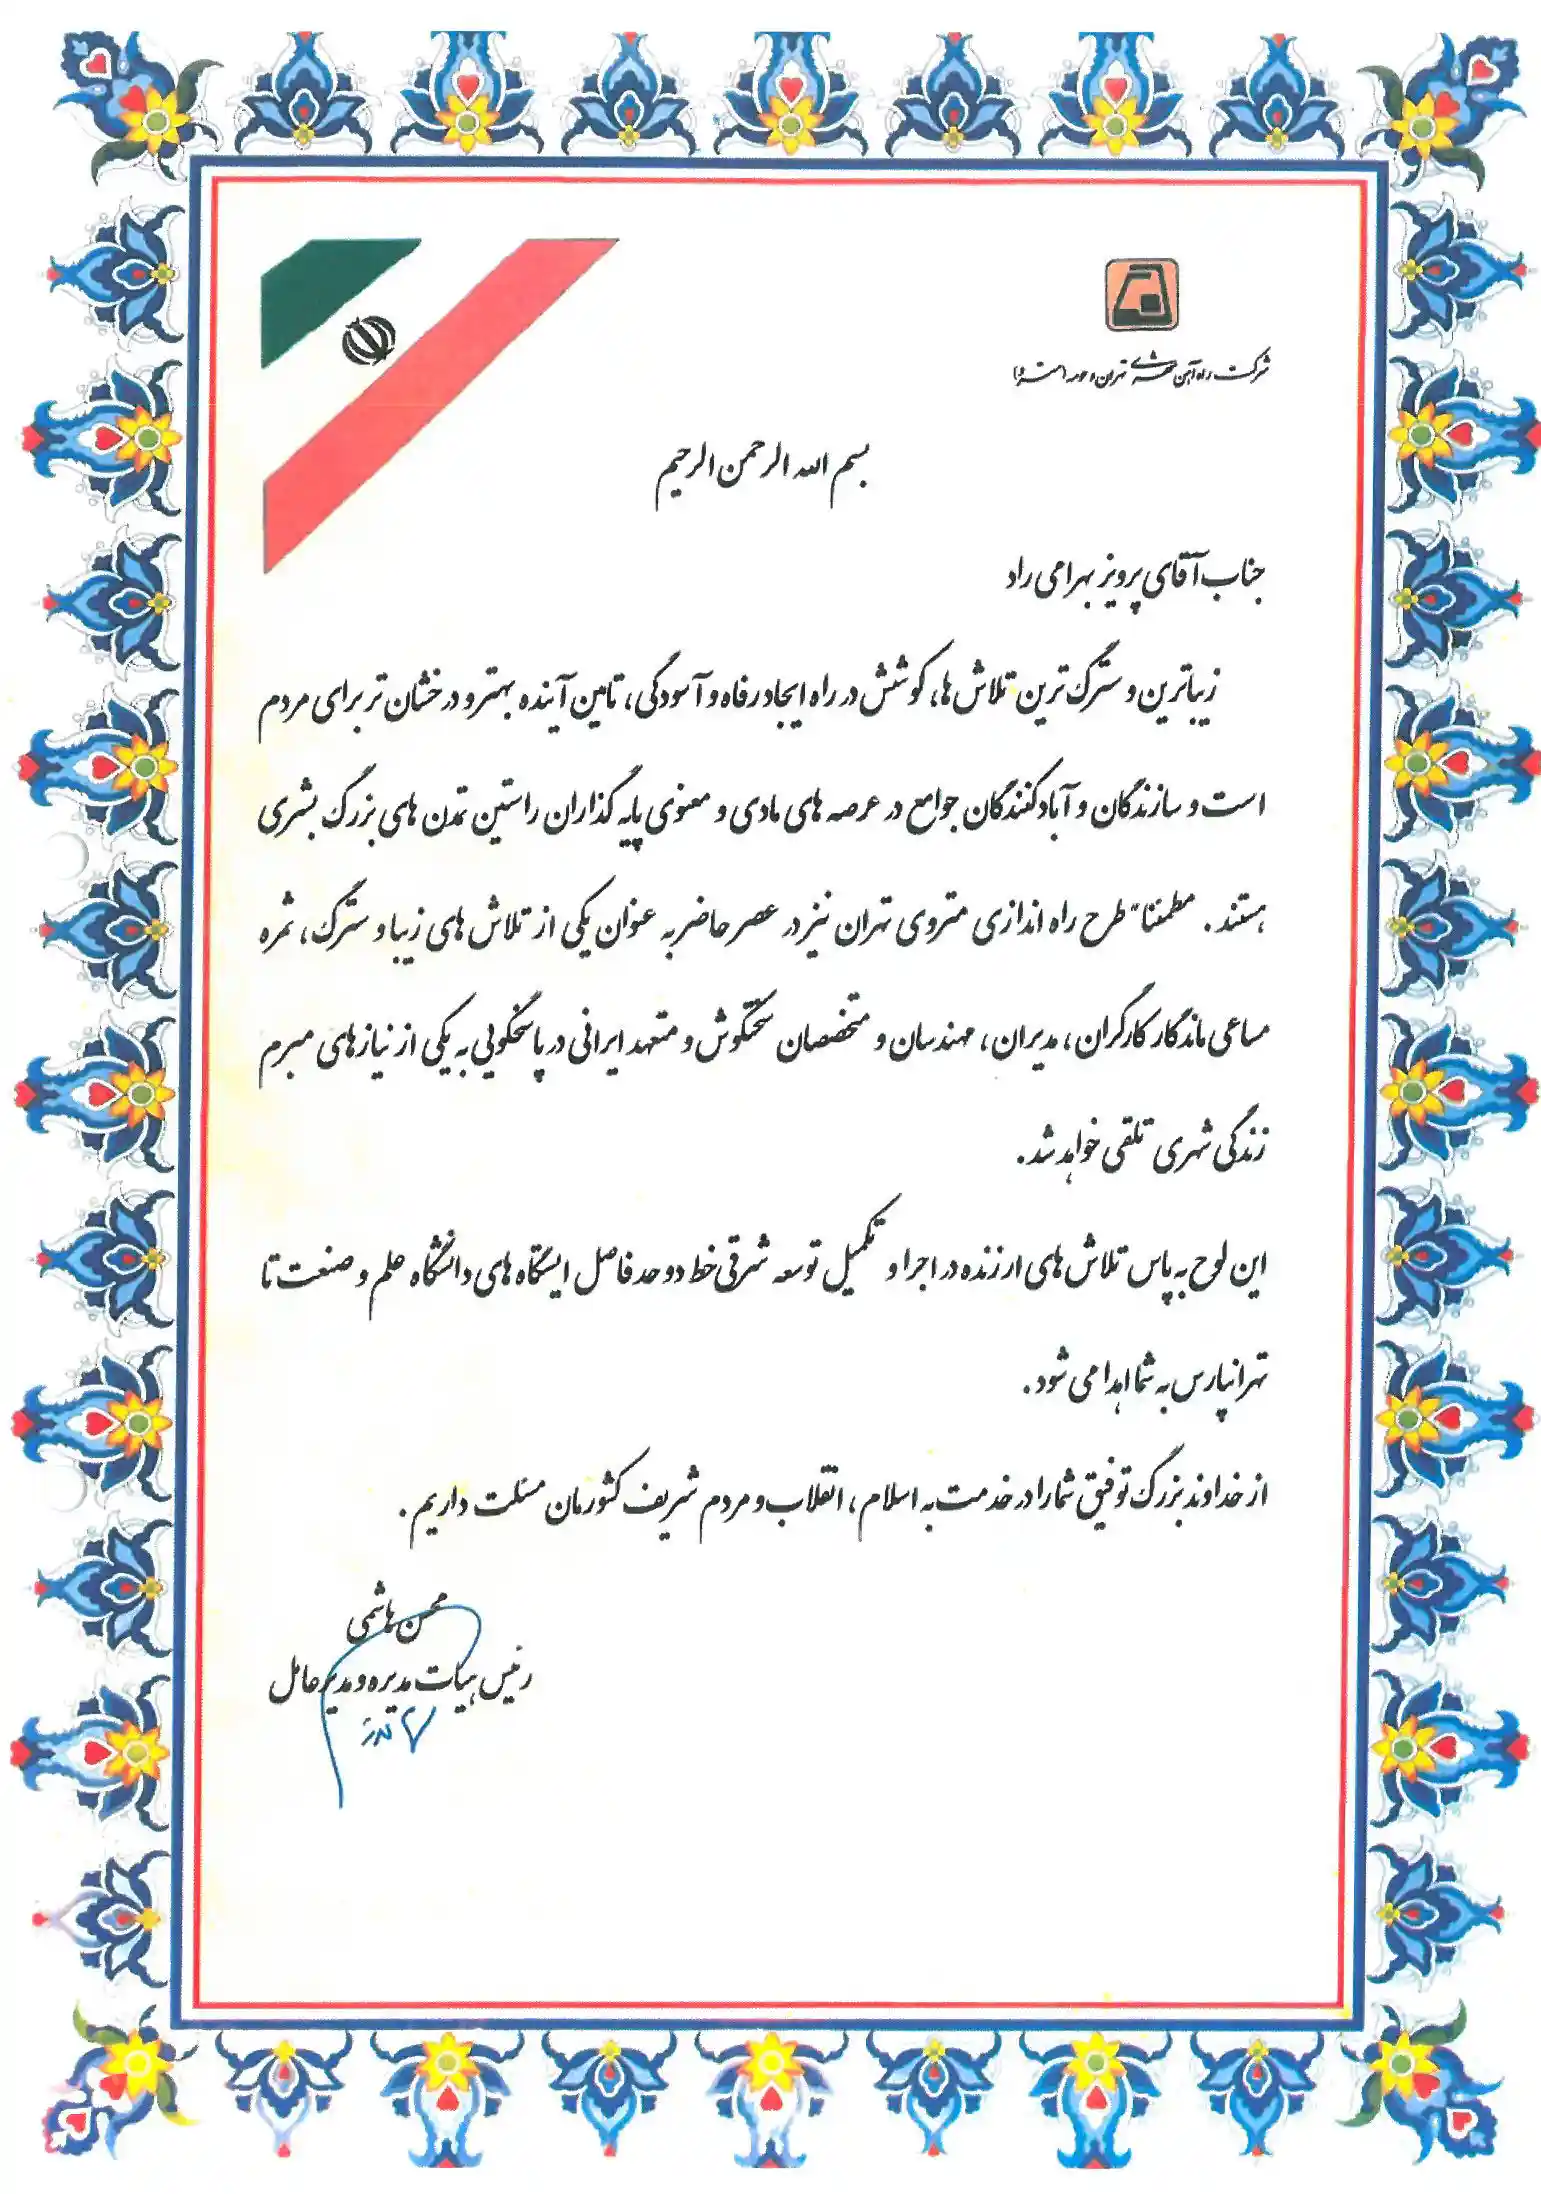 شرکت راه آهن شهری تهران و حومه (مترو)
بسم الله الرحمن الرحیم
جناب آقای پرویز بهرامی راد
زیباترین و سترگ ترین تلاش ها، کوشش در راه ایجاد رفاه و آسودگی، تامین آینده بهتر و درخشان تر برای مردم
است و سازندگان و آبادکنندگان جوامع در عرصه های مادی و معنوی پایه گذاران راستین تمدن های بزرگ بشری
هستند. مطمئنا" طرح راه اندازی متروی تهران نیز در عصر حاضر به عنوان یکی از تلاش های زیبا و سترگ، ثمره
مساعی ماندگار کارگران، مدیران، مهندسان و متخصصان سختکوش و متعهد ایرانی در پاسخگویی به یکی از نیازهای مبرم
زندگی شهری تلقی خواهد شد.
این لوح به پاس تلاش های ارزنده در اجرا و تکمیل توسعه شرقی خط دو حد فاصل ایستگاه های دانشگاه علم و صنعت تا
تهرانپارس به شما اهدا می شود.
از خداوند بزرگ توفیق شما را در خدمت به اسلام، انقلاب و مردم شریف کشورمان مسئلت داریم.
محسن هاشمی
رئیس هیات مدیره و مدیرعامل